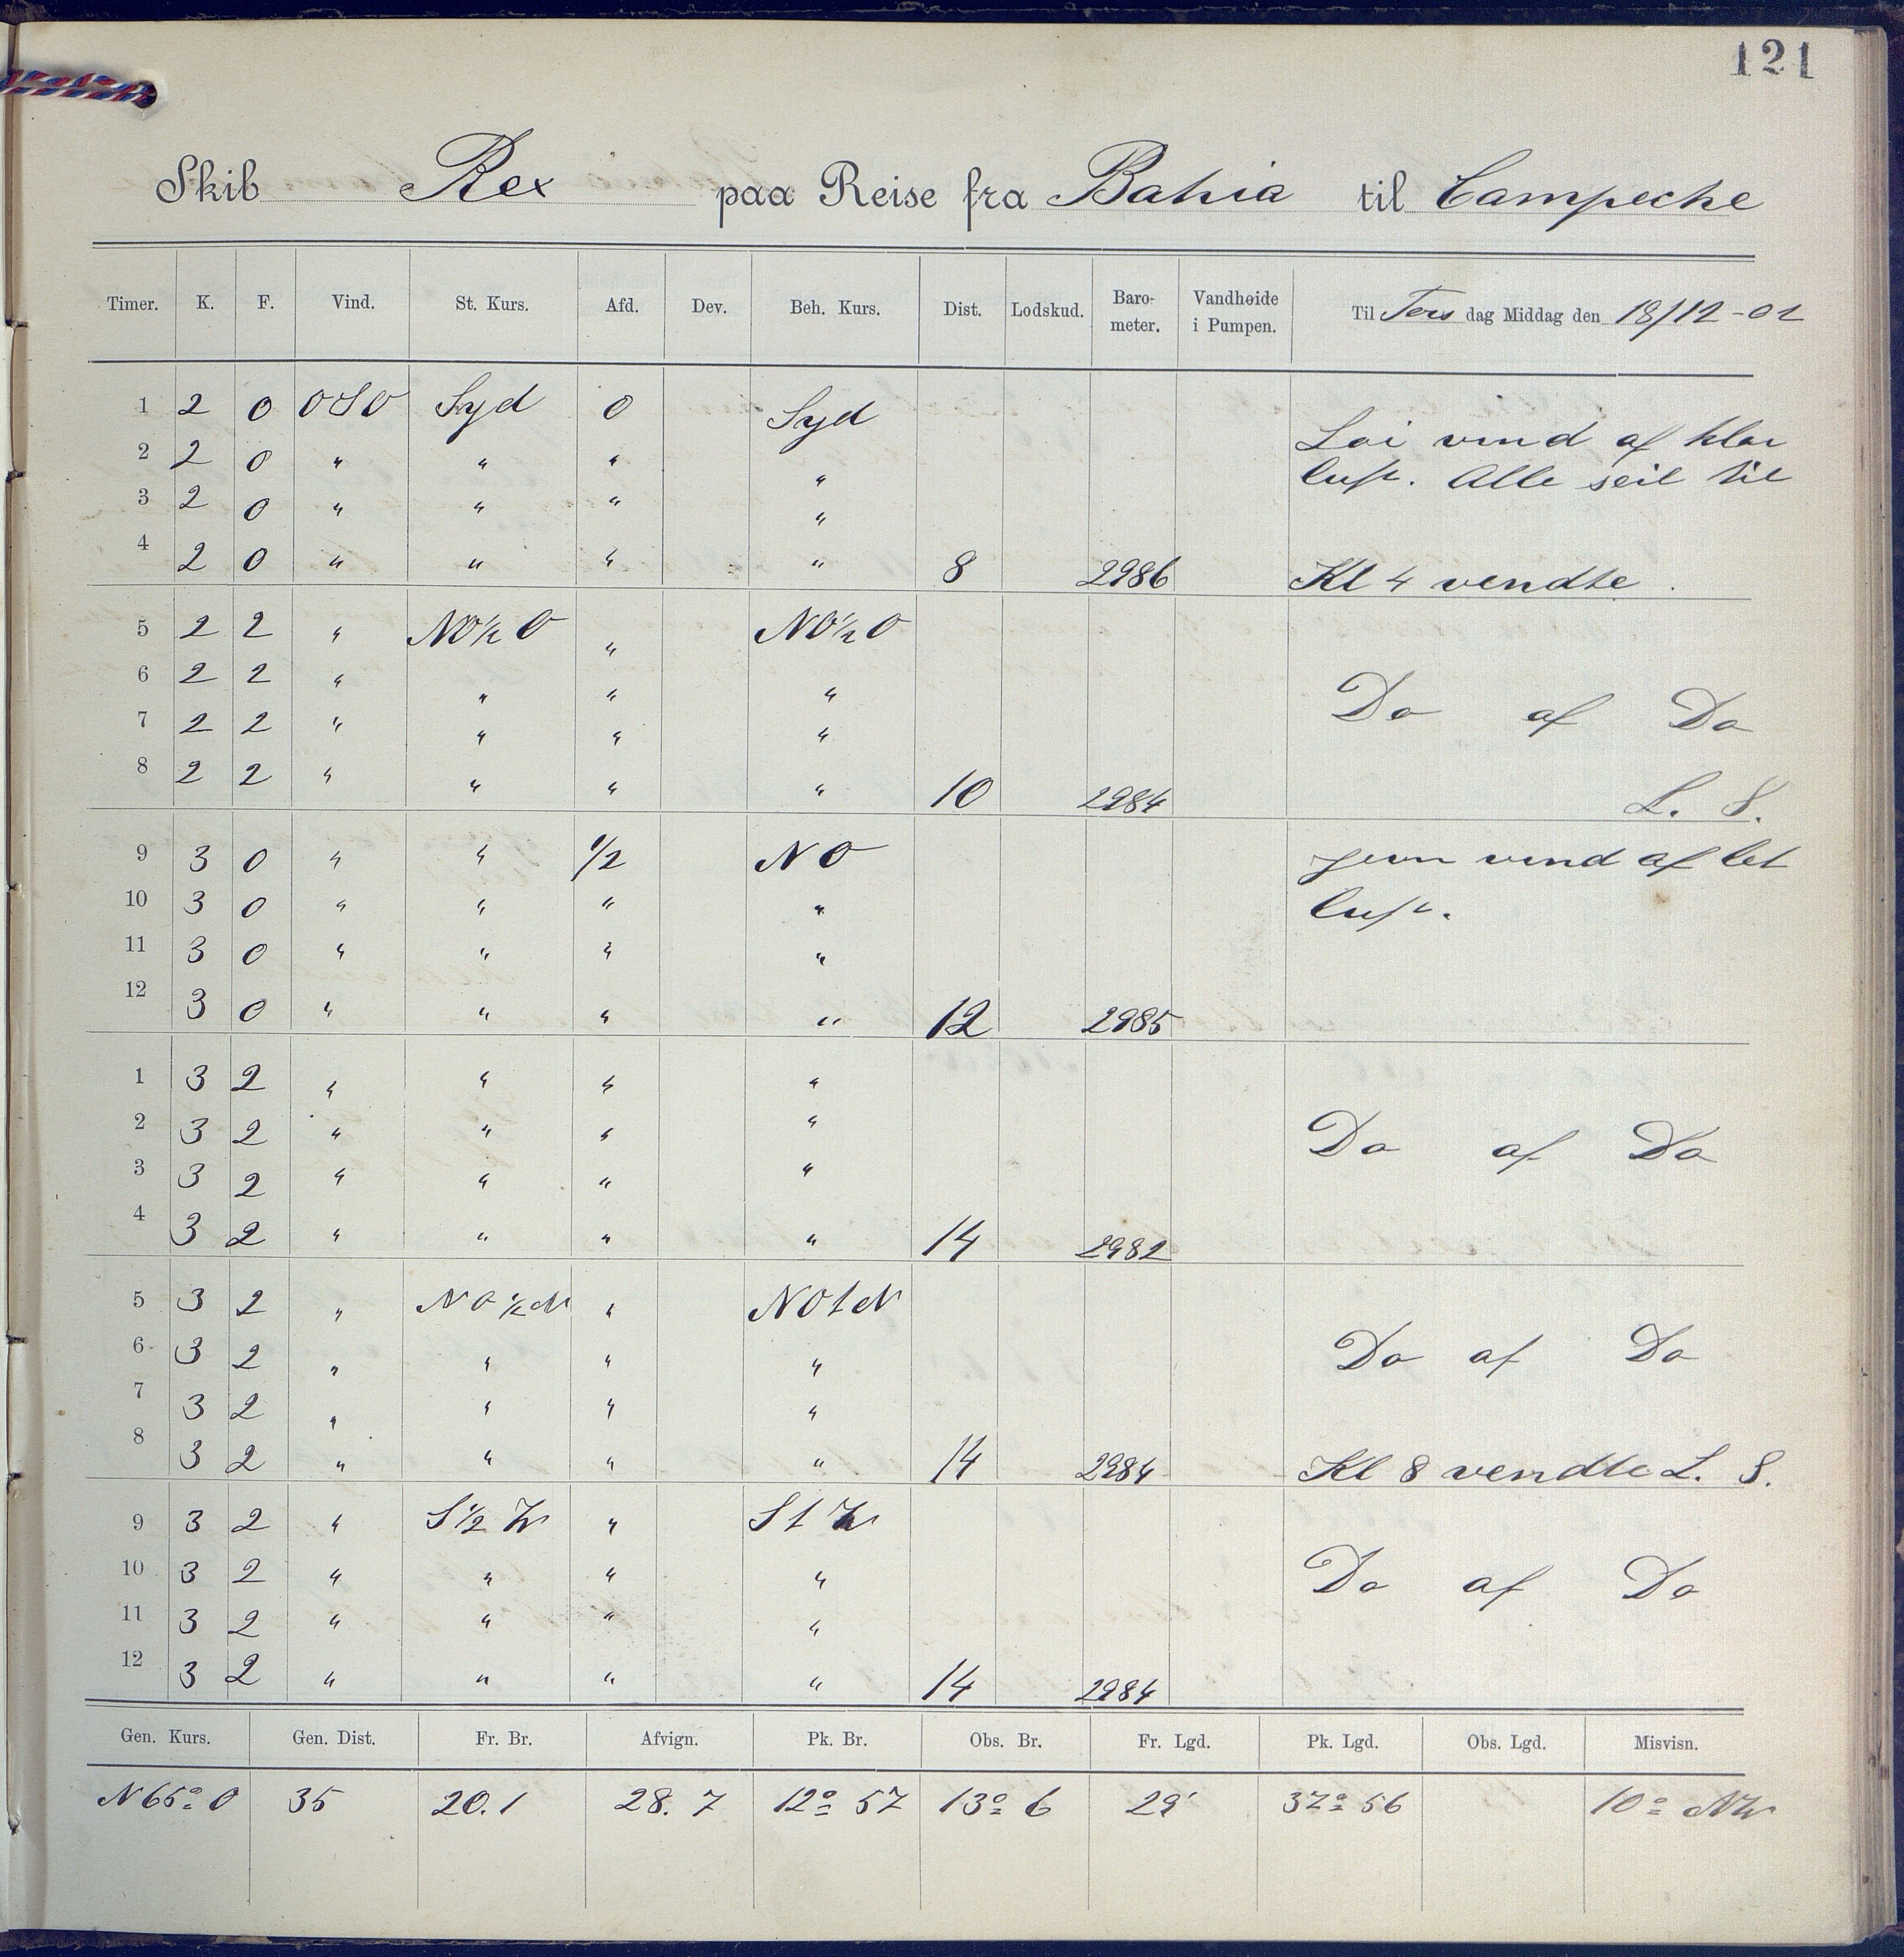 121
Skib Rex paa Reise fra Bahia til Campeche
Timer. K. F. Vind. St. Kurs. Afd. Dev. Beh. Kurs. Dist. Lodskud. Baro-meter. Vandhøide i Pumpen. Til Tors dag Middag den 18/12-02
1 2 0 OSO Syd 0 Syd Løi vind af klar
2 2 0 " " " " luft. Alle seil til
3 2 0 " " " "
4 2 0 " " " " 8 2986 Kl 4 vendte.
5 2 2 " NO½O " NO½O
6 2 2 " " " " Do af Do
7 2 2 " " " "
8 2 2 " " " " 10 2984 L. S.
9 3 0 " " 1/2 NO jevn vind af let
10 3 0 " " " " luft.
11 3 0 " " " "
12 3 0 " " " " 12 2985
1 3 2 " " " "
2 3 2 " " " " Do af Do
3 3 2 " " " "
4 3 2 " " " " 14 2982
5 3 2 " NO½N " NOtN
6 3 2 " " " " Do af Do
7 3 2 " " " "
8 3 2 " " " " 14 2984 Kl 8 vendte L. S.
9 3 2 " S½W " StW
10 3 2 " " " " Do af Do
11 3 2 " " " "
12 3 2 " " " " 14 2984
Gen. Kurs. Gen. Dist. Fr. Br. Afvign. Pk. Br. Obs. Br. Fr. Lgd. Pk. Lgd. Obs. Lgd. Misvisn.
N65°O 35 20.1 28.7 12° 57 13° 6 29' 37° 56 10° NW